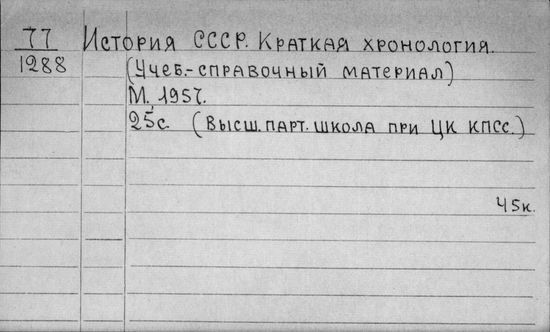 77 История СССР. Краткая хронология.
1288 (Учеб.-справочный материал)
М., 1957.
25с. (Высш. парт. школа при ЦК КПСС.)
45к.